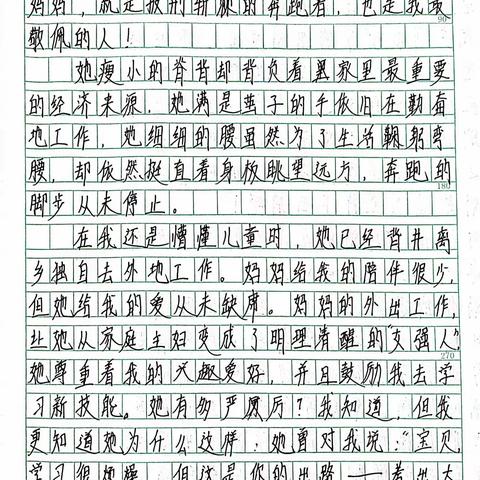 妈妈，就是披荆斩棘的奔跑者，也是我最
90
敬佩的人！
她瘦小的脊背却背负着是家里最重要
的经济来源，她满是茧子的手依旧在勤奋
地工作，她细细的腰虽然为了生活鞠躬弯
腰，却依然挺直着身板眺望远方，奔跑的
180
脚步从未停止。
在我还是懵懂儿童时，她已经背井离
乡独自去外地工作。妈妈给我的陪伴很少，
但她给我的爱从未缺席。妈妈的外出工作，
让她从家庭主妇变成了明理清醒的“女强人”
270
她尊重着我的兴趣爱好，并且鼓励我去学
习新技能。她有多严厉？我知道，但我
更知道她为什么这样，她曾对我说：“宝贝，
学习很 ，但这是你的出路——考出大